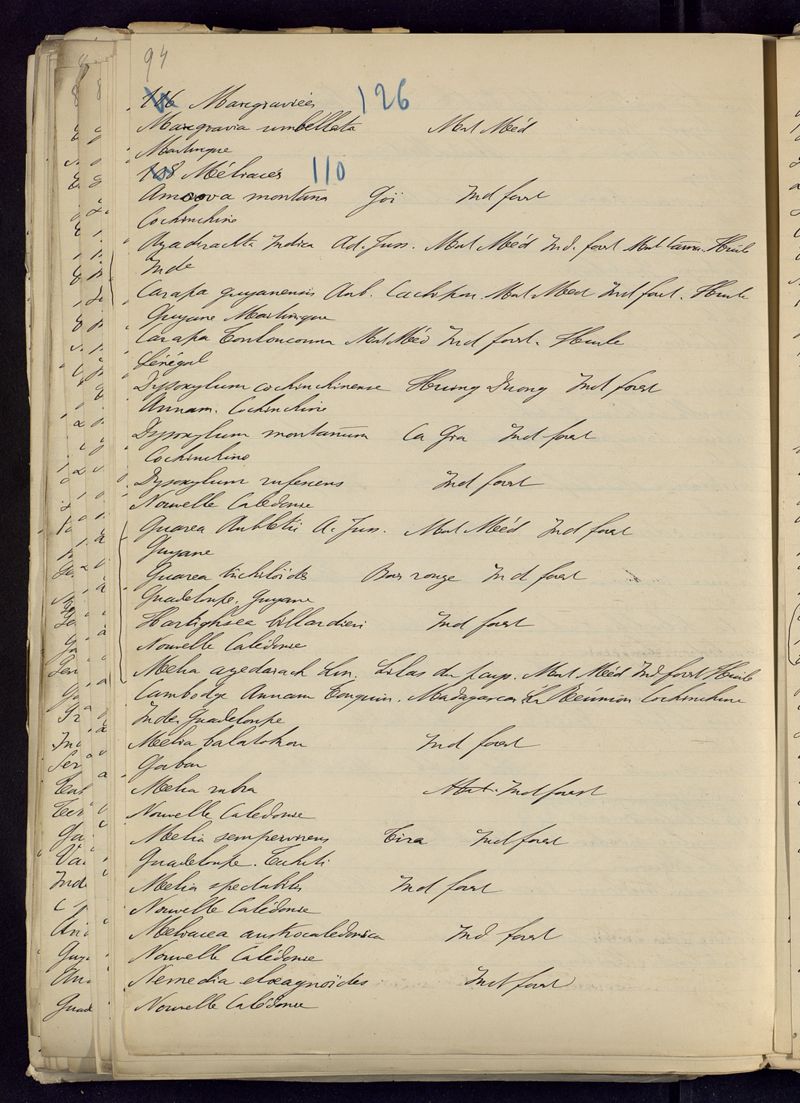 94
Marcgraviées 126
Marcgravia umbellata Mat Méd
Martinique
108 Méliacées 110
Amoora montana Goï Ind forest
Cochinchine
Azadirachta Indica Ad. Juss. Mat Méd Ind. forest Mat tann. Huile
Inde
Carapa guyanensis Aub. Mat Med Ind forest. Huile
Guyane Martinique
Carapa Touloucouna Mat Méd Ind forest. Huile
Sénégal
Dysoxylum cochinchinense Huong Duong Ind forest
Annam. Cochinchine
Dysoxylum montanum Ca Gia Ind forest
Cochinchine
Dysoxylum rufescens Ind forest
Nouvelle Calédonie
Guarea Aubletii A. Juss. Mat Méd Ind forest
Guyane
Guarea trichiloïdes Bois rouge Ind forest
Guadeloupe. Guyane
Hartighsea billardieri Ind forest
Nouvelle Calédonie
Melia azedarach Lin. Lilas du pays. Mat Méd Ind forest Huile
Cambodge Annam Tonquin. Madagascar La Réunion Cochinchine
Inde. Guadeloupe
Melia Ind forest
Gabon
Melia rubra Ind forest
Nouvelle Calédonie
Melia sempervirens Tira Ind forest
Guadeloupe. Tahiti
Melia spectabilis Ind forest
Nouvelle Calédonie
Meliacea austrocaledonica Ind forest
Nouvelle Calédonie
Nemedia elaeagnoïdes Ind forest
Nouvelle Calédonie